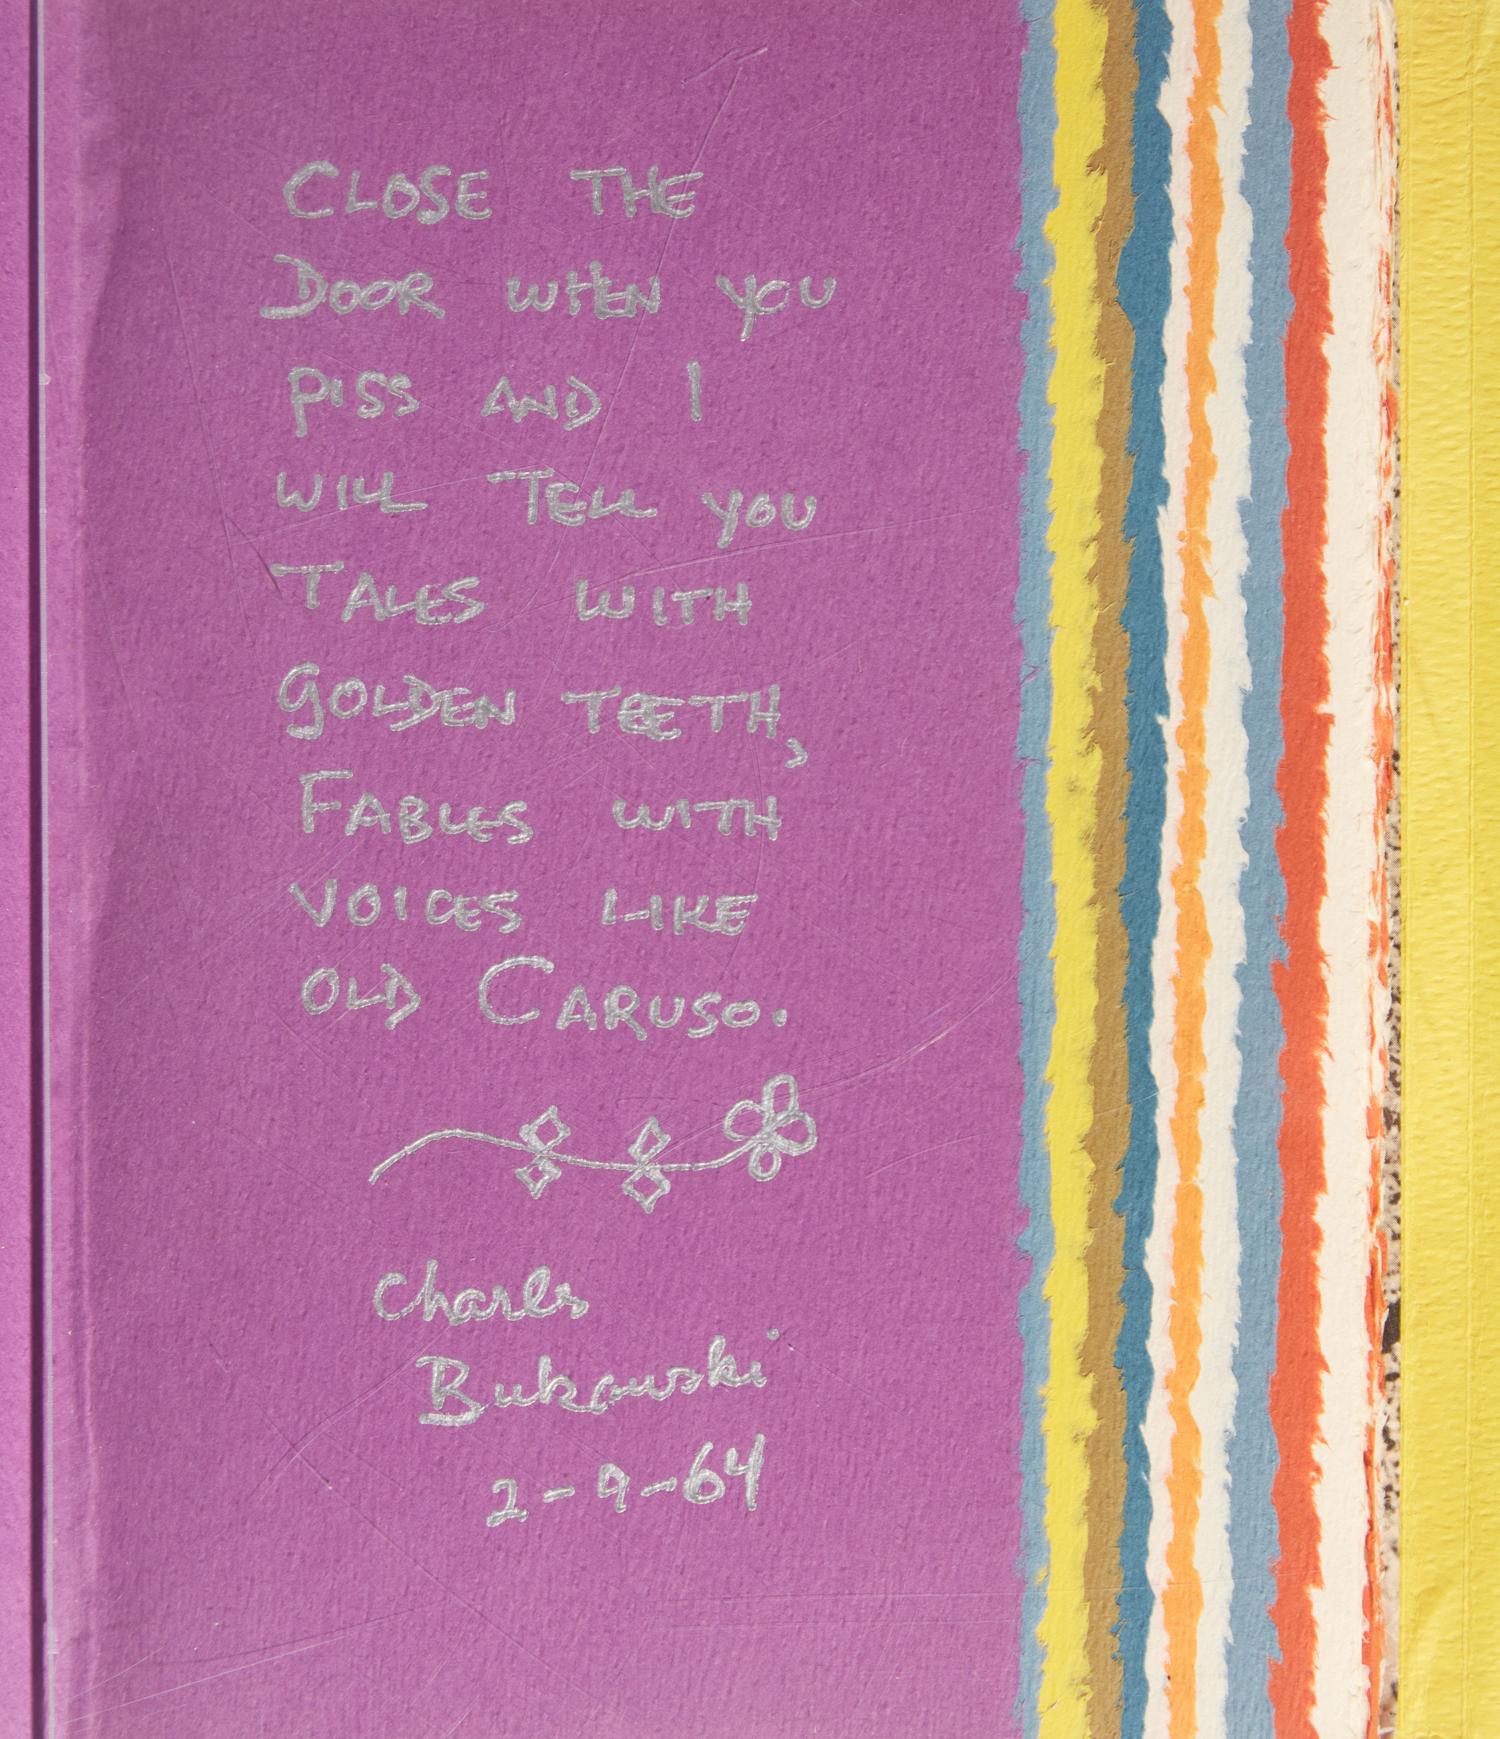 CLOSE THE
DOOR WHEN YOU
PISS AND I
WILL TELL YOU
TALES WITH
GOLDEN TEETH,
FABLES WITH
VOICES LIKE
OLD CARUSO.
Charles
Bukowski
2-9-64